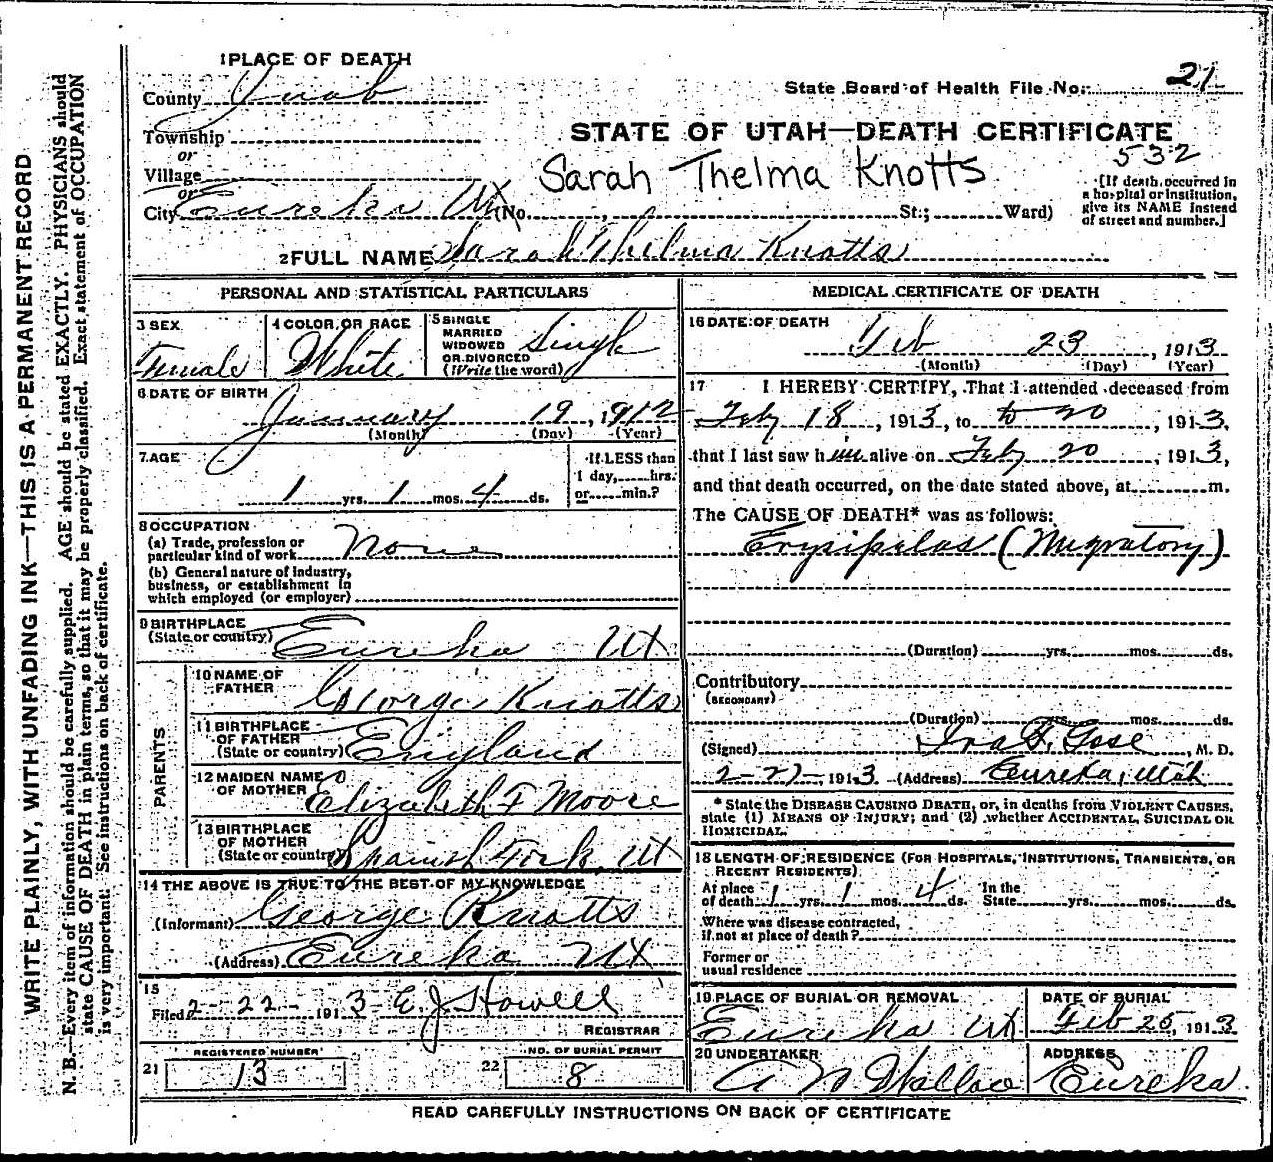 1 PLACE OF DEATH
County Juab
State Board of Health File No. 21
Township
or
Village
or
City Eureka Ut (No. , St.; Ward)
STATE OF UTAH—DEATH CERTIFICATE
532
Sarah Thelma Knotts
[If death occurred in
a hospital or institution,
give its NAME instead
of street and number.]
2 FULL NAME Sarah Thelma Knotts
PERSONAL AND STATISTICAL PARTICULARS
3 SEX
Female
4 COLOR OR RACE
White
5 SINGLE
MARRIED
WIDOWED
OR DIVORCED
(Write the word)
Single
6 DATE OF BIRTH
January 19, 1912
(Month) (Day) (Year)
7. AGE
1 yrs. 1 mos. 4 ds.
If LESS than
1 day, hrs.
or min.?
8 OCCUPATION
(a) Trade, profession or
particular kind of work None
(b) General nature of industry,
business, or establishment in
which employed (or employer)
9 BIRTHPLACE
(State or country) Eureka Ut
PARENTS
10 NAME OF
FATHER George Knotts
11 BIRTHPLACE
OF FATHER
(State or country) England
12 MAIDEN NAME
OF MOTHER Elizabeth F Moore
13 BIRTHPLACE
OF MOTHER
(State or country) Spanish Fork, Ut
14 THE ABOVE IS TRUE TO THE BEST OF MY KNOWLEDGE
(Informant) George Knotts
(Address) Eureka Ut
15
Filed 2-22-1913 E. J. Howell
REGISTRAR
REGISTERED NUMBER
21 13
NO. OF BURIAL PERMIT
22 8
MEDICAL CERTIFICATE OF DEATH
16 DATE OF DEATH
Feb 23, 1913
(Month) (Day) (Year)
17 I HEREBY CERTIFY, That I attended deceased from
Feb 18, 1913, to to 20, 1913,
that I last saw h alive on Feb 20, 1913,
and that death occurred, on the date stated above, at m.
The CAUSE OF DEATH* was as follows:
Erysipelas (Migratory)
(Duration) yrs. mos. ds.
Contributory
(SECONDARY)
(Duration) yrs. mos. ds.
(Signed) Ira F. Gose, M. D.
1913 (Address) Eureka, Utah
* State the DISEASE CAUSING DEATH, or, in deaths from VIOLENT CAUSES,
state (1) MEANS OF INJURY; and (2) whether ACCIDENTAL, SUICIDAL OR
HOMICIDAL.
18 LENGTH OF RESIDENCE (FOR HOSPITALS, INSTITUTIONS, TRANSIENTS, OR
RECENT RESIDENTS)
At place
of death 1 yrs. 1 mos. 4 ds. In the
State yrs. mos. ds.
Where was disease contracted,
if not at place of death?
Former or
usual residence
19 PLACE OF BURIAL OR REMOVAL
Eureka Ut
DATE OF BURIAL
Feb 25, 1913
20 UNDERTAKER
A N Wallace
ADDRESS
Eureka.
READ CAREFULLY INSTRUCTIONS ON BACK OF CERTIFICATE
WRITE PLAINLY, WITH UNFADING INK—THIS IS A PERMANENT RECORD
N. B.—Every item of information should be carefully supplied. AGE should be stated EXACTLY. PHYSICIANS should
state CAUSE OF DEATH in plain terms, so that it may be properly classified. Exact statement of OCCUPATION
is very important. See instructions on back of certificate.